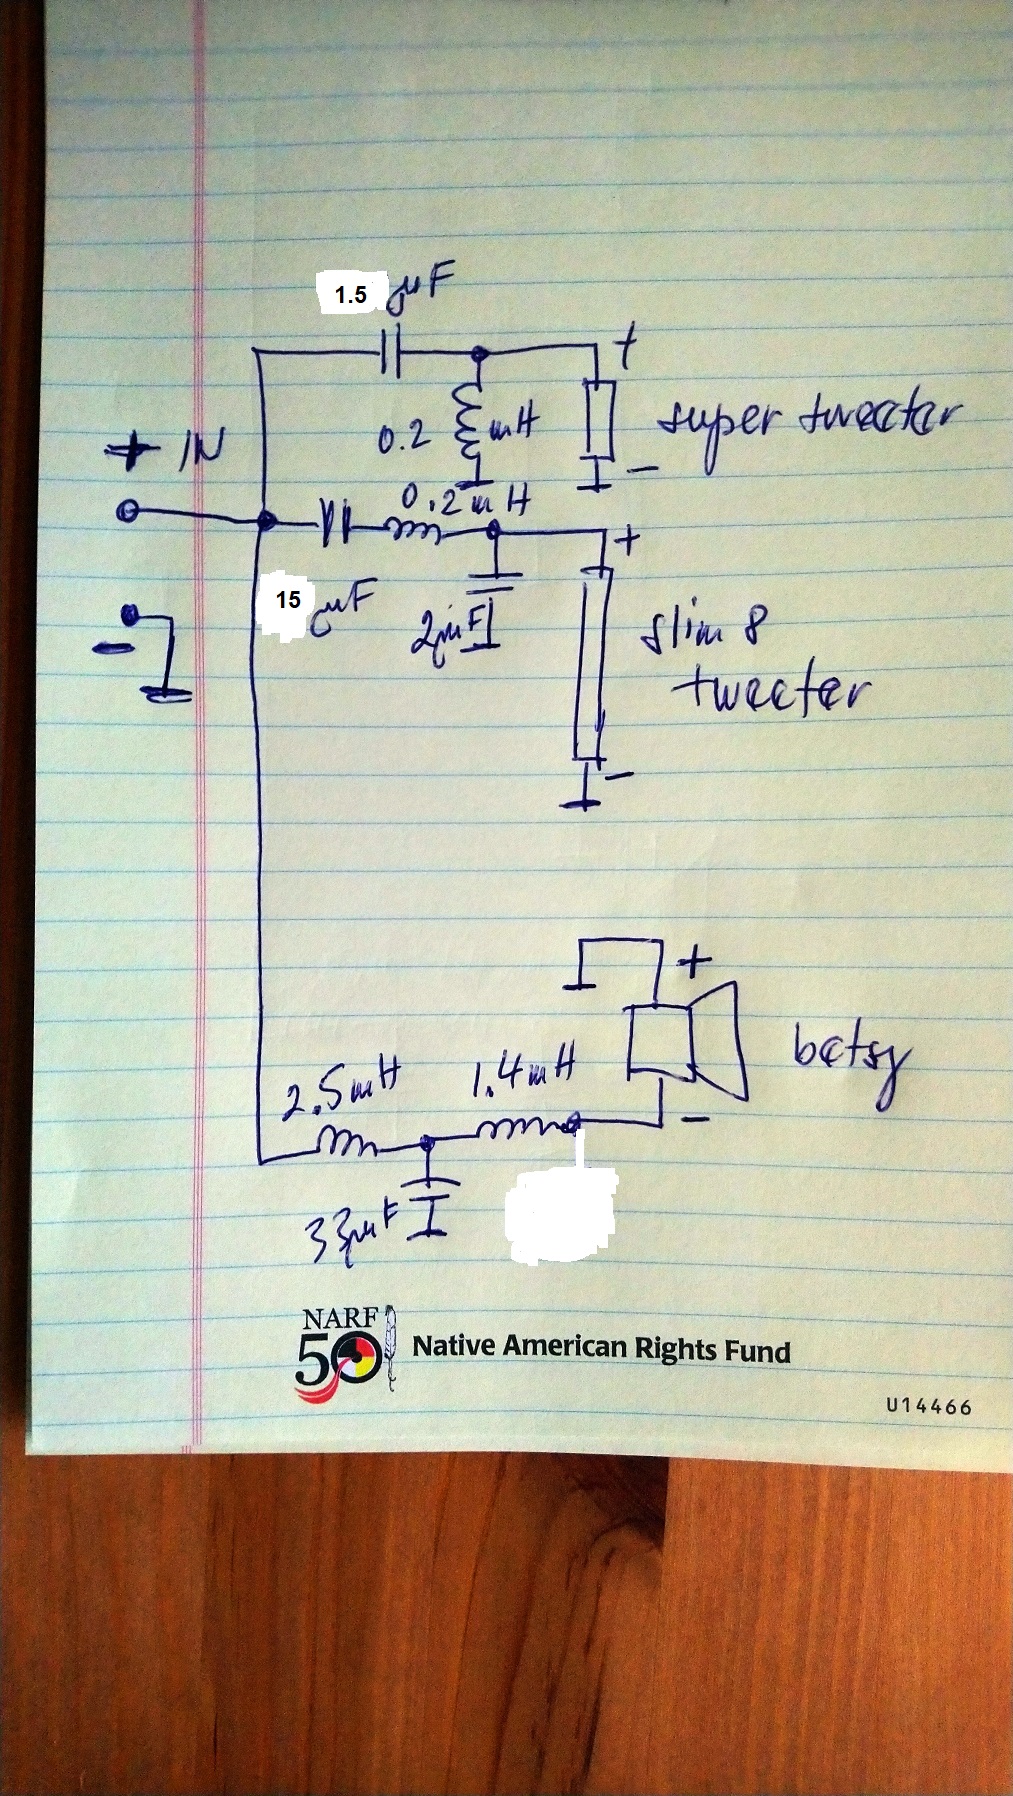 1.5 µF
+
0.2 mH
super tweeter
+ IN
-
0.2mH
+
15 µF
2µF
slim 8
tweeter
-
-
+
betsy
2.5mH
1.4mH
-
33µF
NARF
50
Native American Rights Fund
U14466